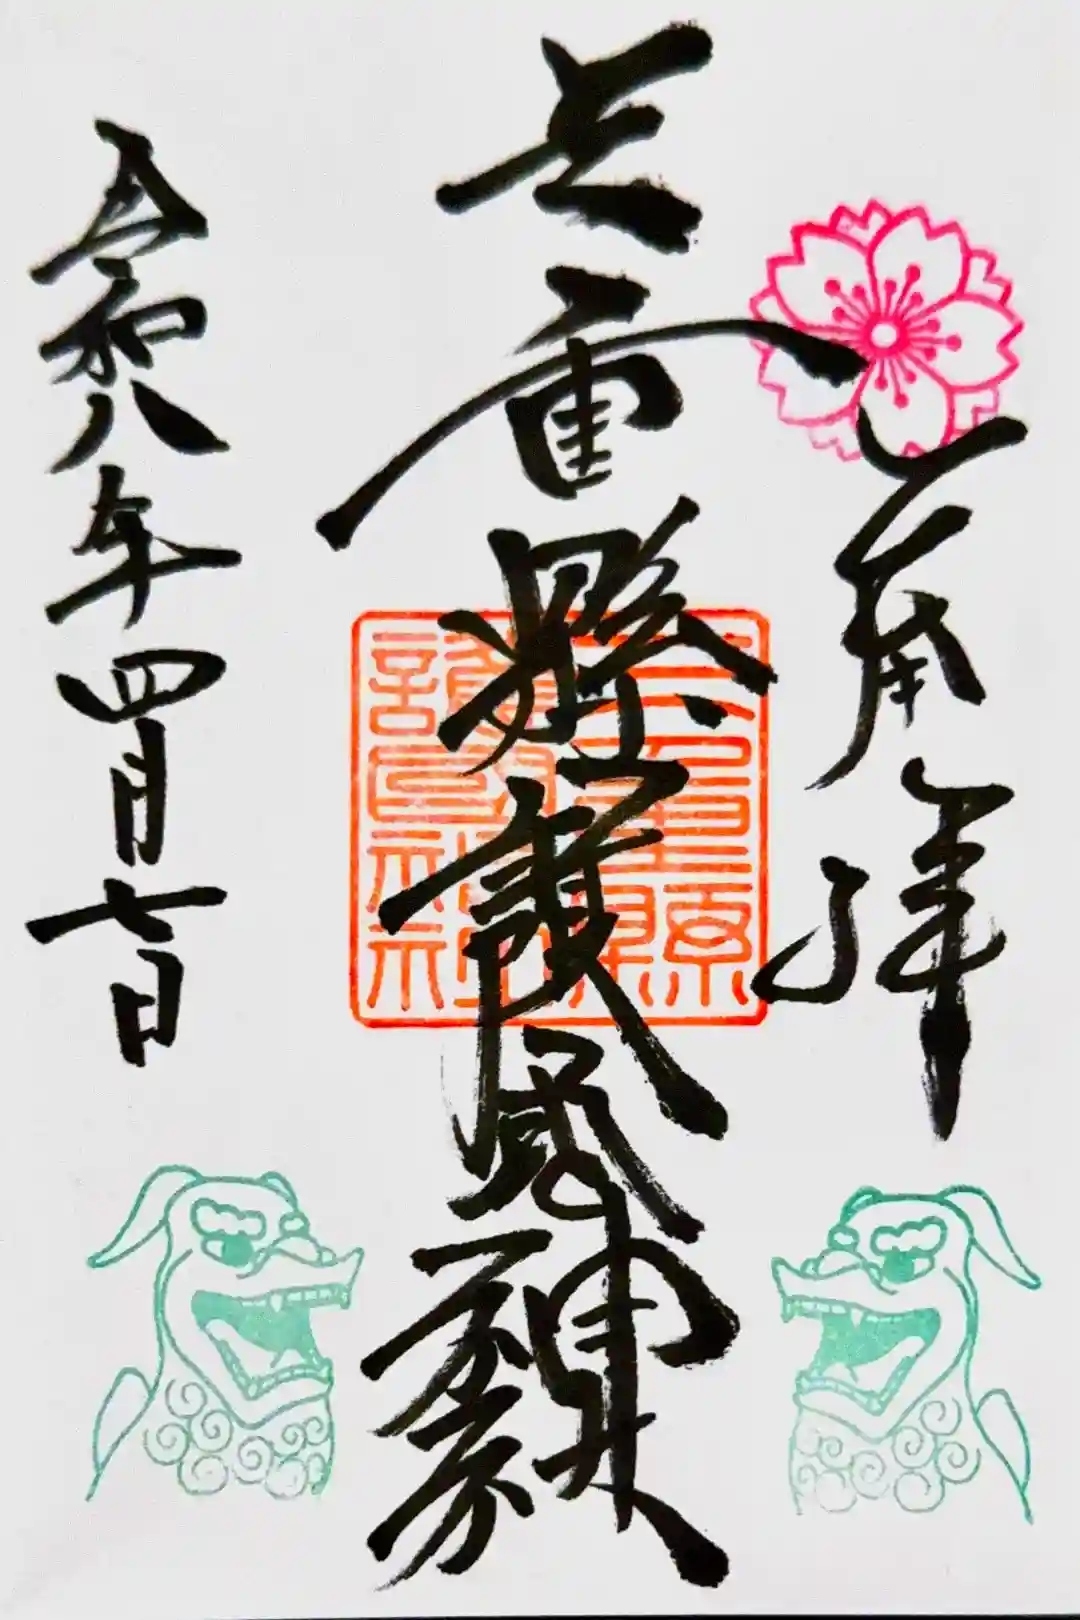 奉拝
三重縣護國神社
三重縣護國神社
令和八年四月七日